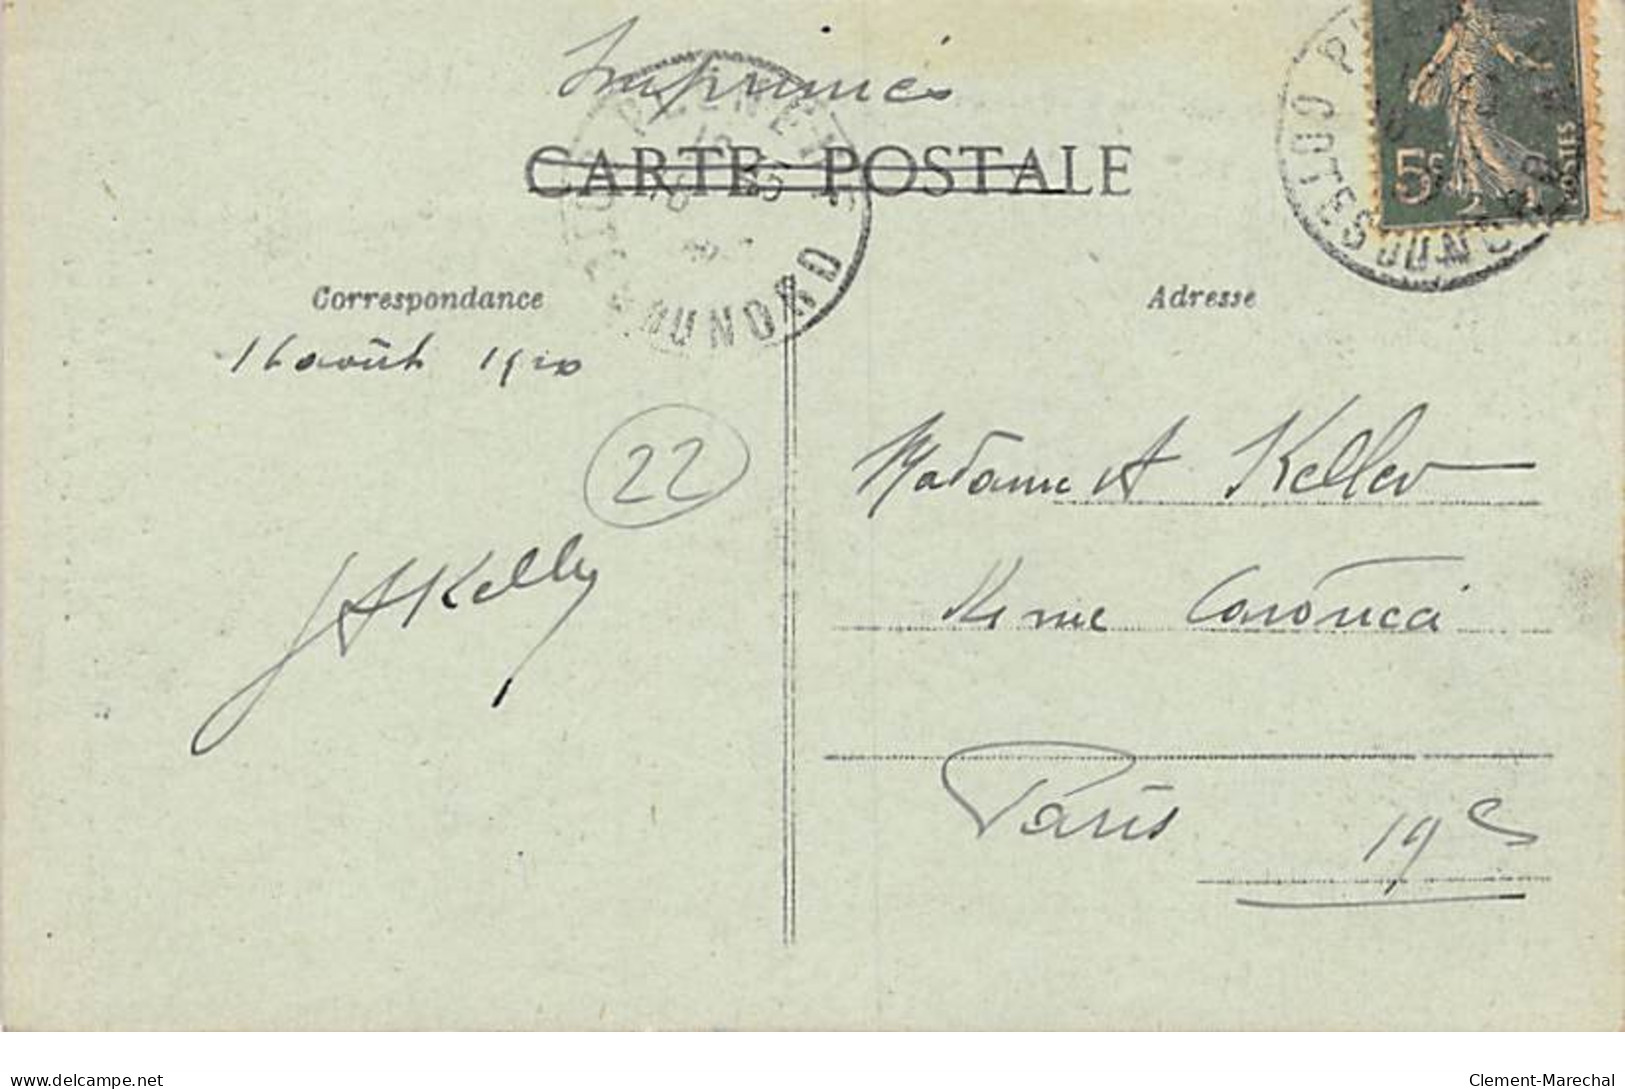 Imprimés
CARTE POSTALE
5c
POSTES
COTES DU NORD
COTES DU NORD
Correspondance
Adresse
16 août 1920
22
Madame A Keller
Paris 19e
www.delcampe.net
Clement-Marechal